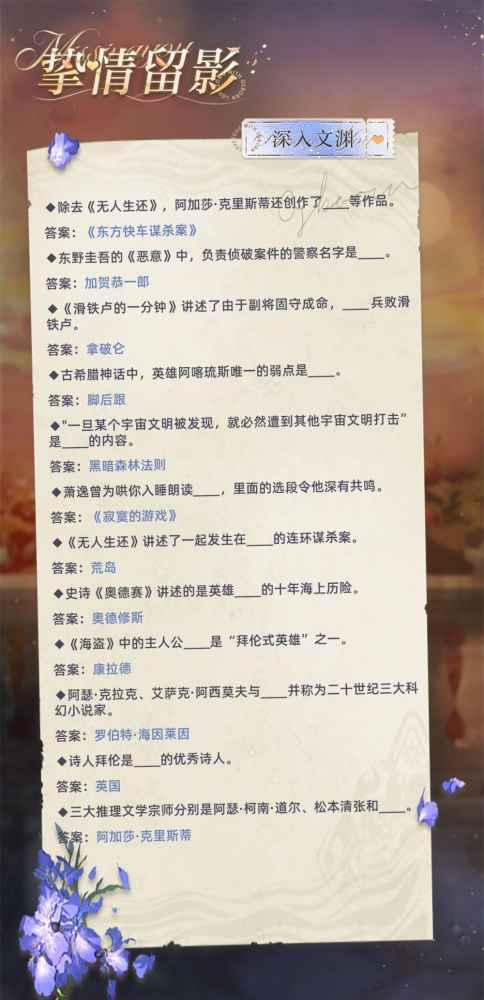 挚情留影
深入文渊
◆除去《无人生还》，阿加莎·克里斯蒂还创作了____等作品。
答案：《东方快车谋杀案》
◆东野圭吾的《恶意》中，负责侦破案件的警察名字是____。
答案：加贺恭一郎
◆《滑铁卢的一分钟》讲述了由于副将固守成命，____兵败滑
铁卢。
答案：拿破仑
◆古希腊神话中，英雄阿喀琉斯唯一的弱点是____。
答案：脚后跟
◆"一旦某个宇宙文明被发现，就必然遭到其他宇宙文明打击”
是____的内容。
答案：黑暗森林法则
◆萧逸曾为哄你入睡朗读____，里面的选段令他深有共鸣。
答案：《寂寞的游戏》
◆《无人生还》讲述了一起发生在____的连环谋杀案。
答案：荒岛
◆史诗《奥德赛》讲述的是英雄____的十年海上历险。
答案：奥德修斯
◆《海盗》中的主人公____是“拜伦式英雄”之一。
答案：康拉德
◆阿瑟·克拉克、艾萨克·阿西莫夫与____并称为二十世纪三大科
幻小说家。
答案：罗伯特·海因莱因
◆诗人拜伦是____的优秀诗人。
答案：英国
◆三大推理文学宗师分别是阿瑟·柯南·道尔、松本清张和____。
答案：阿加莎·克里斯蒂